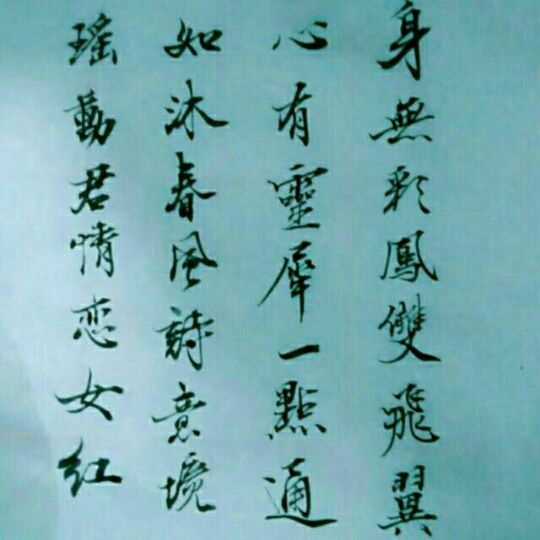 身無彩鳳雙飛翼
心有靈犀一點通
如沐春風詩意境
瑤動君情恋女红